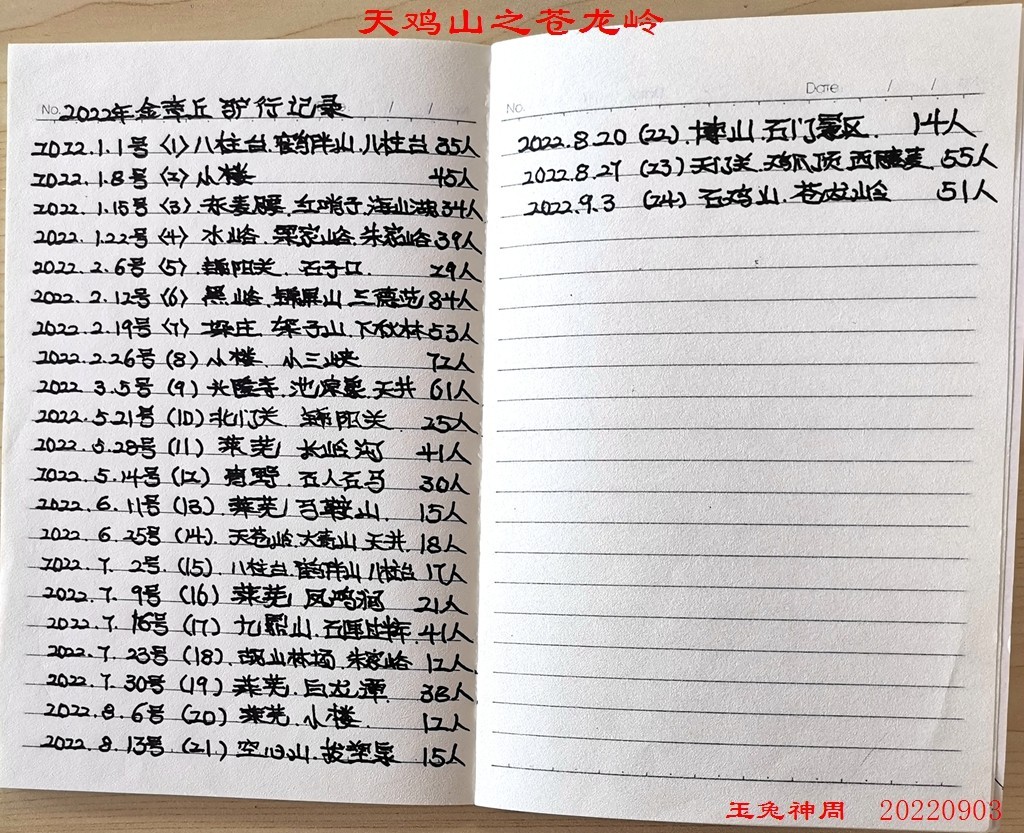 天鸡山之苍龙岭
No. 2022年金章丘驴行记录
2022.1.1号(1)八柱台.鹤伴山.八柱台 35人
2022.1.8号(2)小楼 45人
2022.1.15号(3)东麦腰.红哨子.海山湖 34人
2022.1.22号(4)水峪.梁家峪.朱家峪 39人
2022.2.6号(5)锦阳关.石子口. 29人
2022.2.12号(6)黑峪.锦屏山.三德范 84人
2022.2.19号(7)探庄.架子山.下秋林 53人
2022.2.26号(8)小楼、小三峡 72人
2022.3.5号(9)兴隆寺.池凉泉.天井 61人
2022.5.21号(10)北门关.锦阳关 25人
2022.5.28号(11)莱芜、长岭沟 41人
2022.5.14号(12)青野.石人石马 30人
2022.6.11号(13).莱芜.马鞍山. 15人
2022.6.25号(14).天苍岭.大寨山.天井 18人
2022.7.2号(15).八柱台.鹤伴山.八柱台 17人
2022.7.9号(16)莱芜、凤鸿涧 21人
2022.7.16号(17)九 山. 41人
2022.7.23号(18).胡山林场.朱家峪 12人
2022.7.30号(19).莱芜.白龙潭 38人
2022.8.6号(20).莱芜.小楼. 12人
2022.8.13号(21.)空心山.拔槊泉 15人
No. Date / /
2022.8.20(22).博山.石门景区. 14人
2022.8.27(23)天门关.鸡爪顶.西 55人
2022.9.3(24)石鸡山.苍龙岭 51人
玉兔神周 20220903